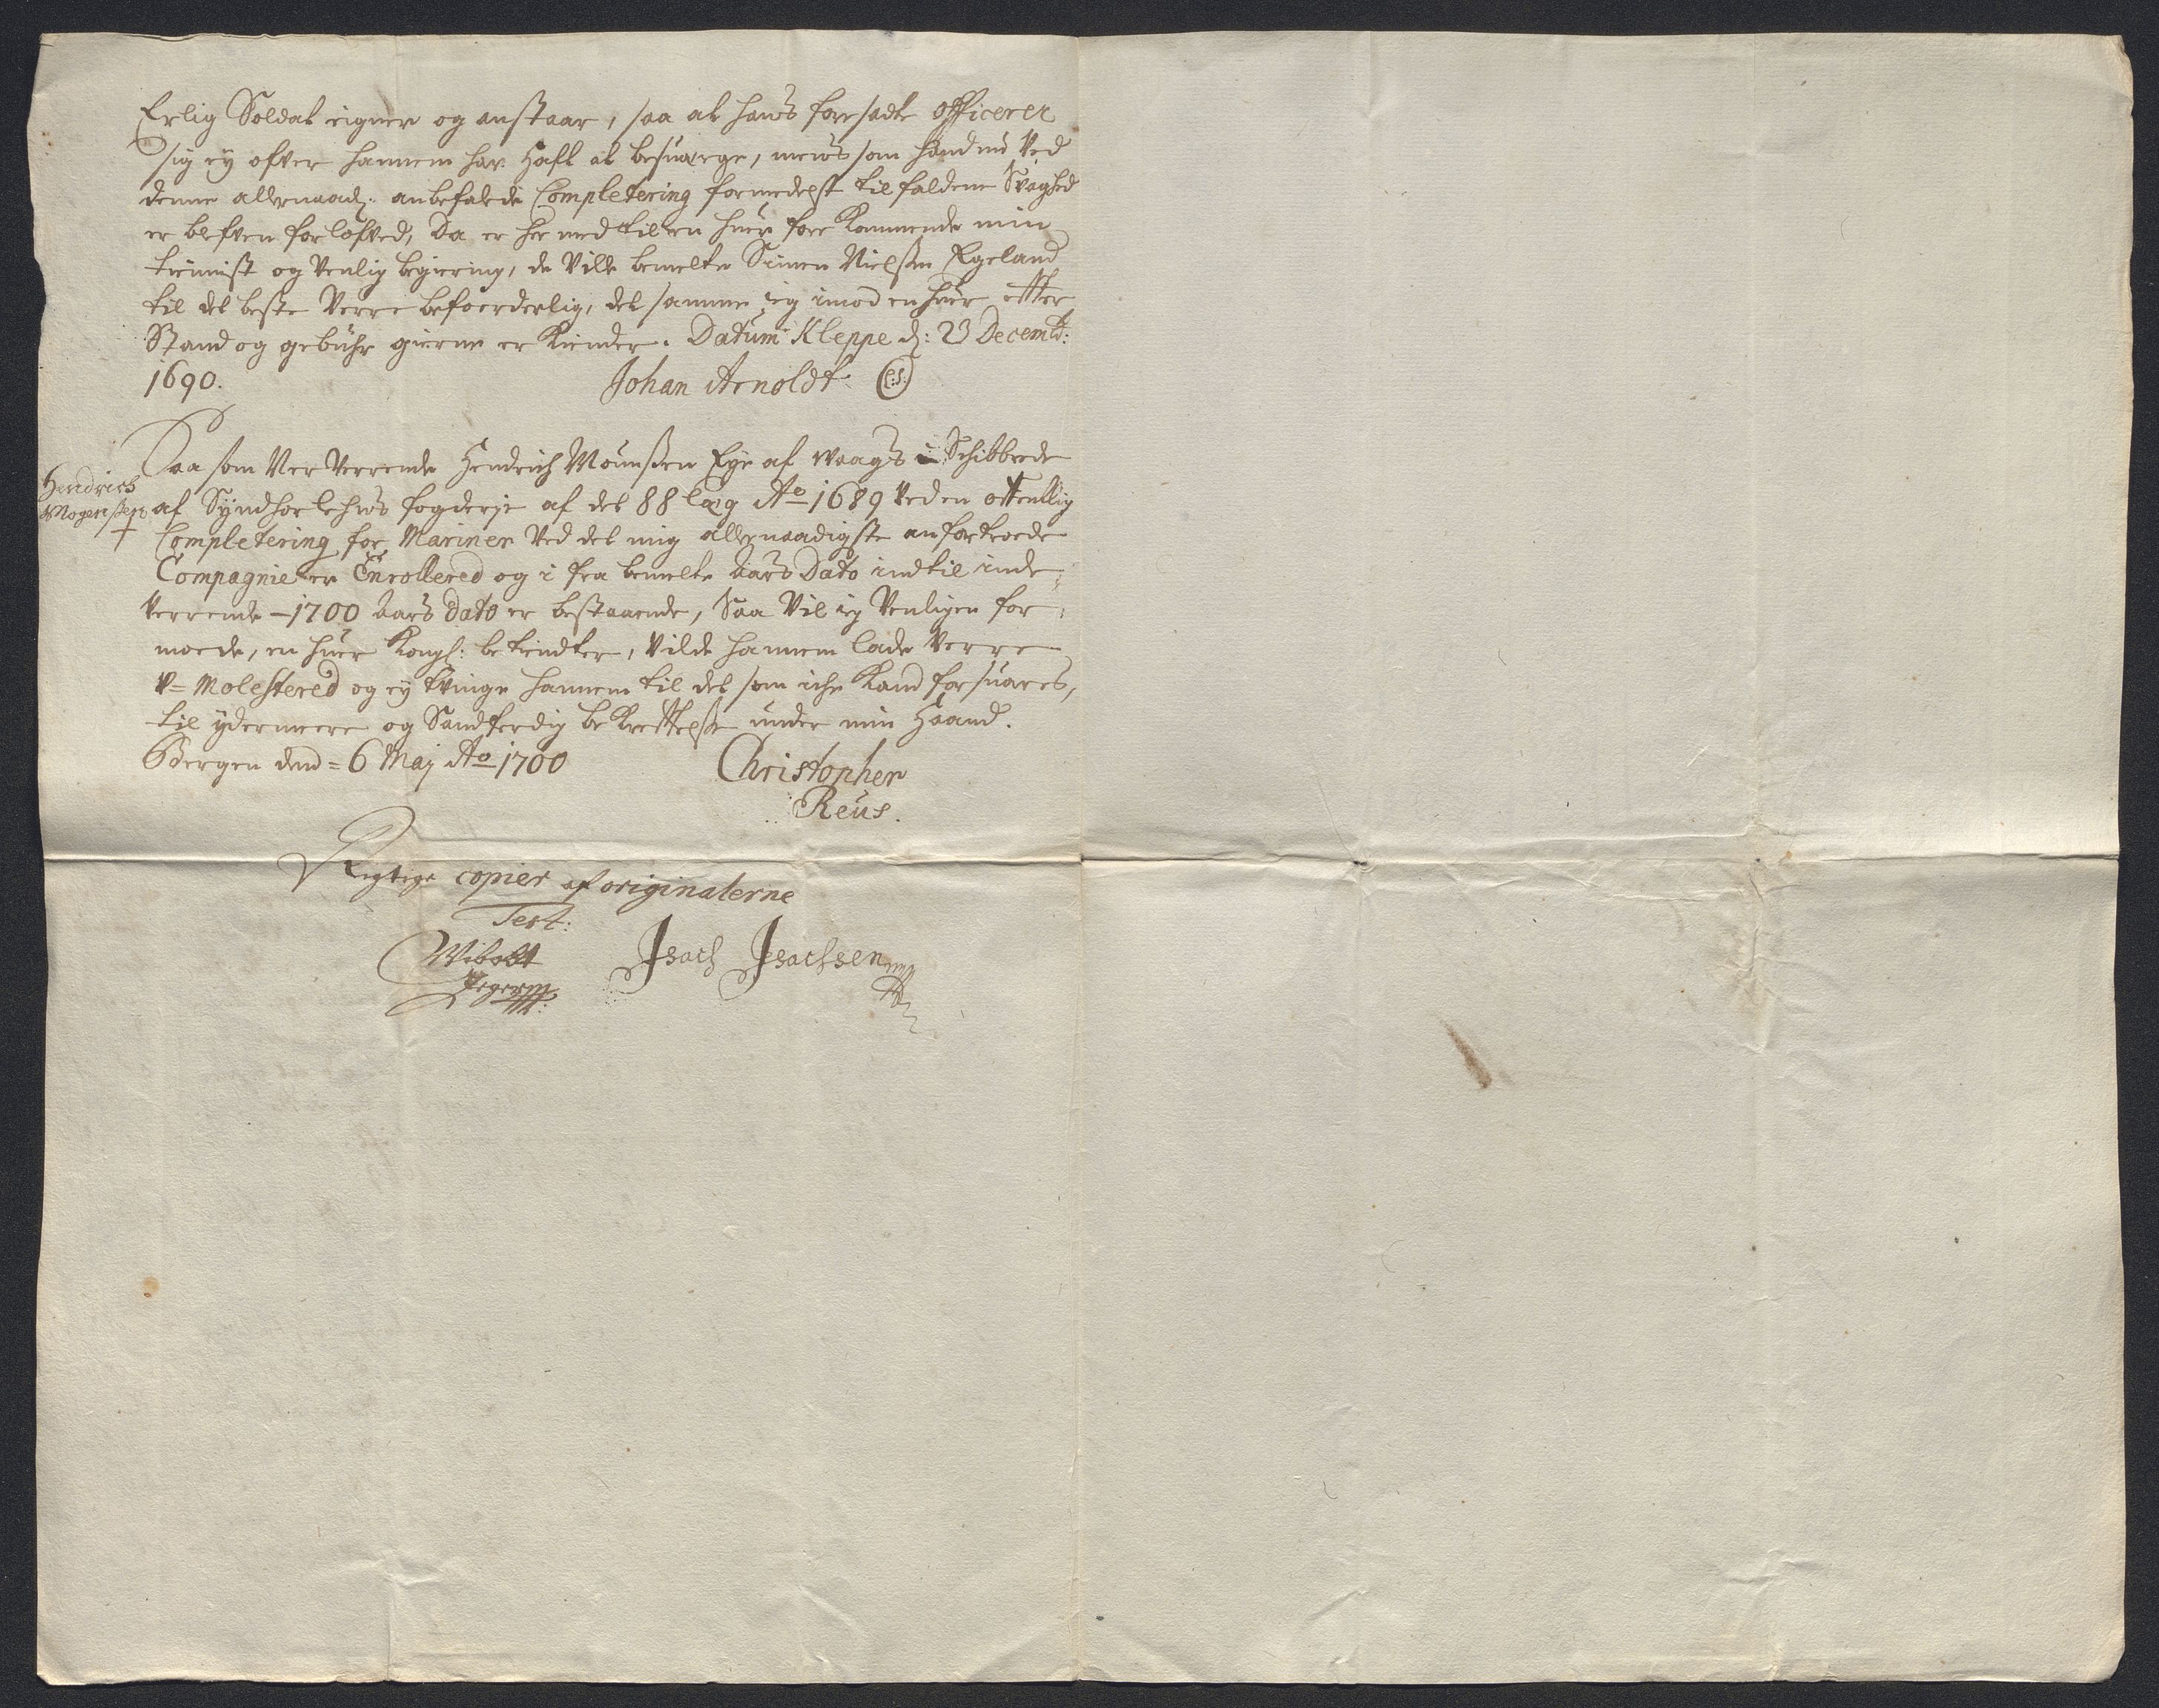 Erlig Soldat eigner og anstaar, saa at hans foresadte officerer
sig ey ofver hannem har Haft at besuerge, mens som hand nu Ved
denne allernaad: anbefalede Completering formedelst tilfaldene Svaghed
er blefven forlofved, Da er her med til en huer fore Kommende min
tienist og Venlig begiering, de Ville bemelte Simen Nielssen Egeland
til det beste Verre befoerderlig, det samme ieg imod en huer effter
Stand og gebühr gierne er Kiender. Datum Kleppe d: 23 Decemb:
1690. Johan Arnoldt (L:S:)
Saa som Nerverrende Hendrich Mounssen Eye af Waags Schibbrede
Hendrich
Mogenssen
af Syndhorlehns fogderje af det 88 læg Ao 1689 Ved en offentlig
Completering for Mariner Ved det mig allernaadigste anfortroede
Compagnie er Enrollered og i fra bemelte Aars Dato indtil inde-
verrende 1700 Aars Dato er bestaaende, Saa Vil ieg Venligen for-
moede, en huer Kongl: betiendter, Vilde hannem lade Verre
V= Molestered og ey tvinge hannem til det som iche Kand forsuares,
til ydermeere og Sandferdig be Krefftelse under min Haand.
Bergen dend = 6 Maj Ao 1700 Christopher
Reus.
Rigtige copier af originalerne
Test:
Wibolt Isach Isachsen
Jegerm: